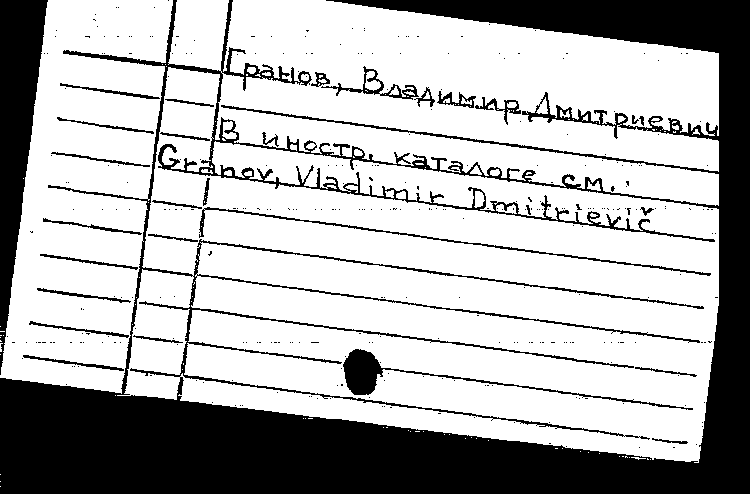 Гранов, Владимир Дмитриевич
В иностр. каталоге см.:
Granov, Vladimir Dmitrievič